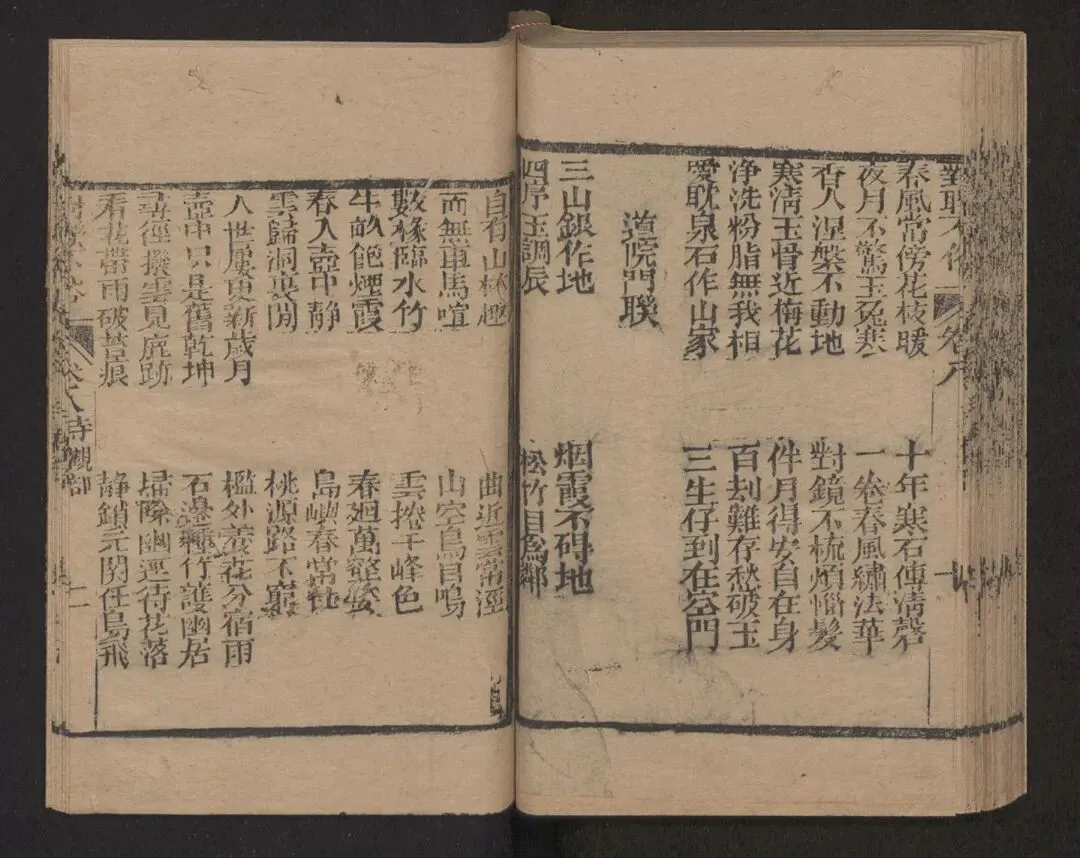 春風常傍花枝暖
十年寒石傳清磬
夜月不驚玉兔寒
一卷春風繡法華
香人涅槃不動地
對鏡不梳煩惱髮
寒清玉骨近梅花
伴月得安自在身
净洗粉脂無我相
百刦難存愁破玉
愛耽泉石作山家
三生仔到在空門
道院門聯
三山銀作地
烟霞不碍地
四序玉調辰
松竹自爲鄰
自有山林趣
曲近
而無車馬喧
山空鳥自鳴
數椽臨水竹
雲捲千峰色
半畝飽煙霞
春廻萬壑
春入壺中静
島嶼春常
雲歸洞裏閒
桃源路不窮
人世屢更新歲月
檻外栽花分宿雨
壺中只是舊乾坤
石邊種竹護幽居
尋徑撥雲見鹿跡
掃除幽逕待花落
看花帶雨破苔痕
静鎖元関任鳥飛
寺觀部